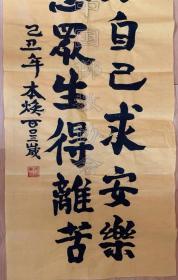 自己求安樂
眾生得離苦
己丑年本焕百三歲